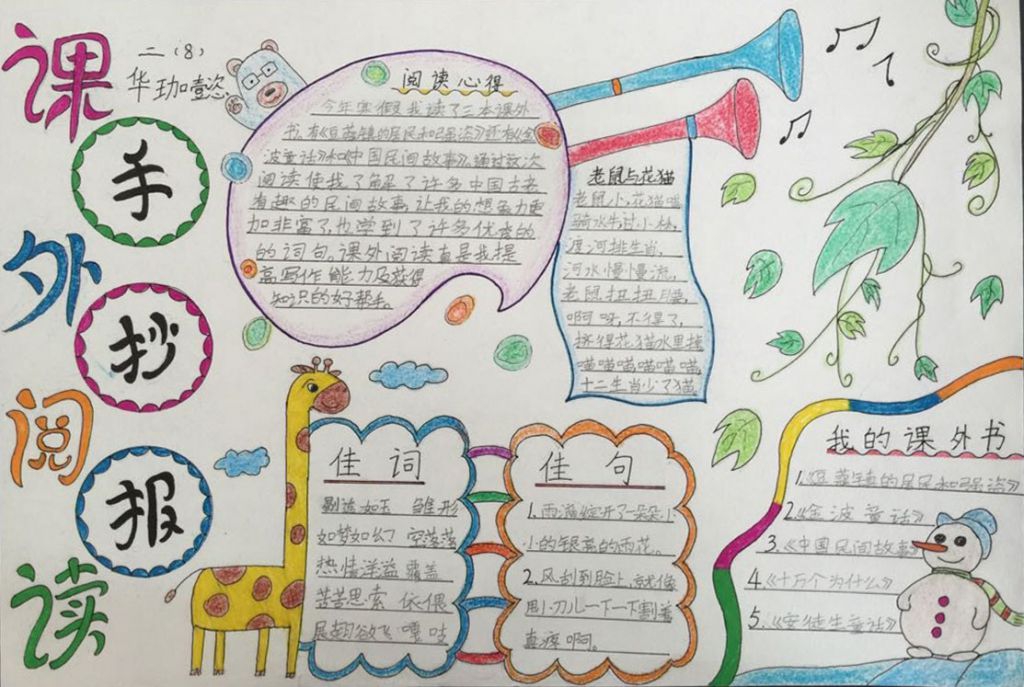 课外阅读
手抄报
二（8）
华珈懿
阅读心得
今年寒假我读了三本课外
书,有《豆蔻镇的居民和强盗》还有《金
波童话》和《中国民间故事》。通过这次
阅读使我了解了许多中国古老
有趣的民间故事,让我的想象力更
加丰富了,也学到了许多优秀的
的词句。课外阅读真是我提
高写作能力及获得
知识的好帮手。
老鼠与花猫
老鼠小,花猫喵
骑水牛过小
渡河排生肖,
河水慢慢流,
老鼠扭扭腰,
啊呀,不得了,
挤得花猫水里掉
喵喵喵喵喵喵
十二生肖少了猫。
佳词
剔透如玉 雏形
如梦如幻 空荡荡
热情洋溢 覆盖
苦苦思索 依偎
展翅欲飞 嘎吱
佳句
1.雨滴绽开了朵朵小
小的银亮的雨花。
2.风刮到脸上,就像
用小刀儿一下一下割着
真疼啊。
我的课外书
1.《豆蔻镇的居民和强盗》
2.《金波童话》
3.《中国民间故事》
4.《十万个为什么》
5.《安徒生童话》